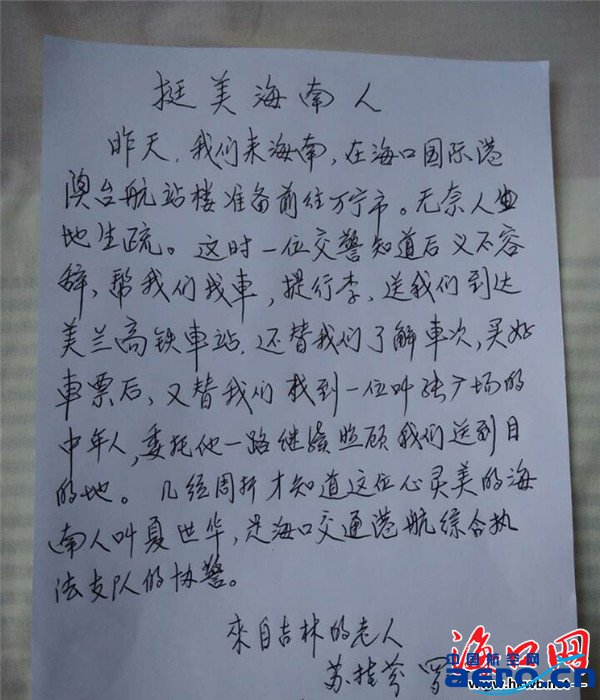 挺美海南人
昨天，我们来海南，在海口国际港
澳台航站楼准备前往万宁市。无奈人
地生疏。这时一位交警知道后义不容
辞，帮我们找車，提行李，送我们到达
美兰高铁車站，还替我们了解車次，买好
車票后，又替我们找到一位叫张广场的
中年人，委托他一路继续照顾我们送到目
的地。几经周折才知道这位心灵美的海
南人叫夏世华，是海口交通港航综合执
法支队的协警。
來自吉林的老人
苏桂芩 罗
海口网
中国航空网
aero.cn